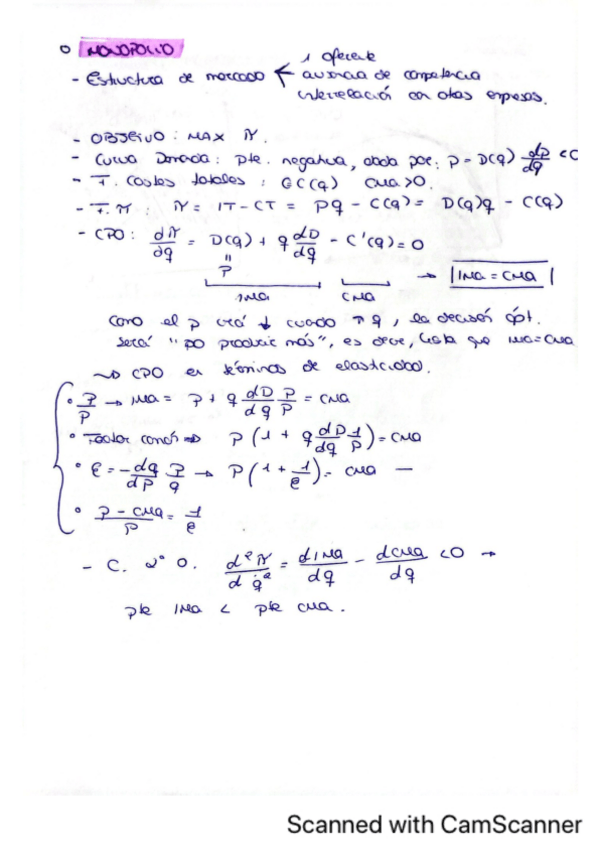 o MONOPOLIO
1 oferente
- Estructura de mercado < ausencia de competencia
interrelación con otras empresas.
- OBJETIVO: MAX π.
- Curva Demanda: pte. negativa, dada por: p = D(q) dp/dq <0
- F. Costes totales: C(q) CMa>0.
- F. π: π = IT - CT = pq - C(q) = D(q)q - C(q)
- CPO: dπ/dq = D(q) + q dD/dq - C'(q) = 0
"
P → |IMa = CMa|
IMa CMa
Como el p ↓ cuando ↑ q, la decisión ópt.
será "no producir más", es decir, hasta que IMa=CMa
→ CPO en términos de elasticidad.
• P/P → IMa = P + q dD/dq P/P = CMa
• Factor común ⇒ P(1 + q dD/dq 1/P) = CMa
• ε = -dq/dP P/q → P(1 + 1/ε) = CMa —
• P - CMa/P = 1/ε
- C. 2º O. d²π/dq² = dIMa/dq - dCMa/dq <0 →
pte IMa < pte CMa.
Scanned with CamScanner